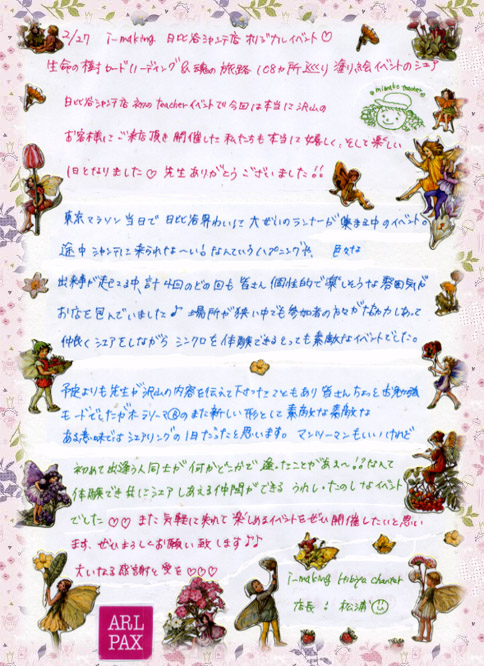 2/27 i-making 日比谷シャンテ店 オリジナルイベント♡
生命の樹カードリーディング&魂の旅路108カ所巡り 塗り絵イベントのシェア
日比谷シャンテ店 初のteacherイベントで今回は本当に沢山の
お客様にご来店頂き開催した私たちも本当に嬉しく、そして楽しい
1日となりました♡ 先生ありがとうございました!!
東京マラソン当日で日比谷界わいにて大ぜいのランナーが集まる中のイベント。
途中シャンテに来られな〜い!なんていうハプニングや、色々な
出来事が起こる中、計4回のどの回も皆さん個性的で楽しそうな雰囲気が
お店を包んでいました♪ 場所が狭い中でも参加者の方々が協力しあって
仲良くシェアをしながらシンクロを体験できるとっても素敵なイベントでした。
予定よりも先生が沢山の内容を伝えて下さったこともあり皆さんちょっとお勉強
モードでしたがオーラソーマ®のまた新しい形として素敵な素敵な
ある意味ではシェアリングの1日だったと思います。マンツーマンもいいけれど
初めて出逢う人同士が何かどこかで通ったことがあるー!!なんて
体験でき共にシェアしあえる仲間ができる うれし・たのしなイベント
でした♡♡ また気軽に来れて楽しめるイベントをぜひ開催したいと思い
ます。ぜひよろしくお願い致します♪♪
大いなる感謝と愛を♡♡♡
i-making Hibiya chanter
店長：松浦
ARL
PAX